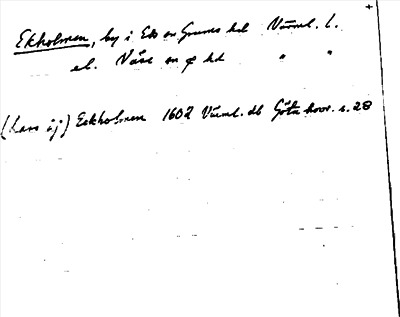 Ekholmen, by i Eds sn Grums hd Värml. l.
el. Väse sn o hd " "
(Lars ij) Eckholmen 1602 Värml. db Göta hovr. s. 28